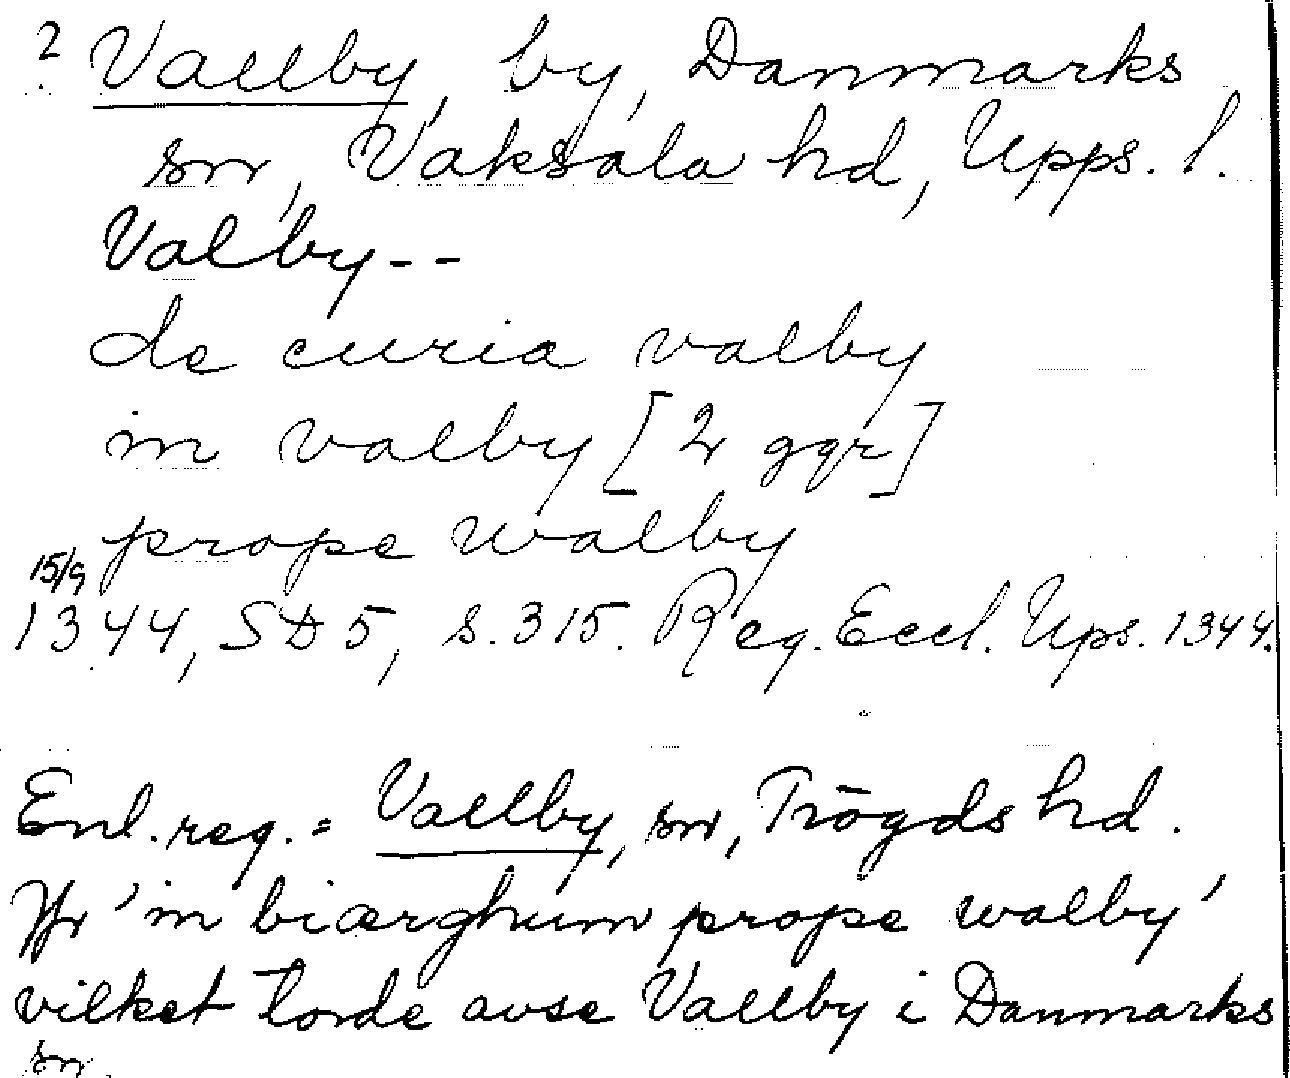 ? Vallby, by, Danmarks
sn, Vaksala hd, Upps. l.
Valby--
de curia valby
in valby [2 ggr]
prope walby
15/9
1344, SD 5, s. 315. Reg. Eccl. Ups. 1344.
Enl. reg. = Vallby, sn, Trögds hd.
Jfr 'in biærghum prope walby'
vilket torde avse Vallby i Danmarks
sn.